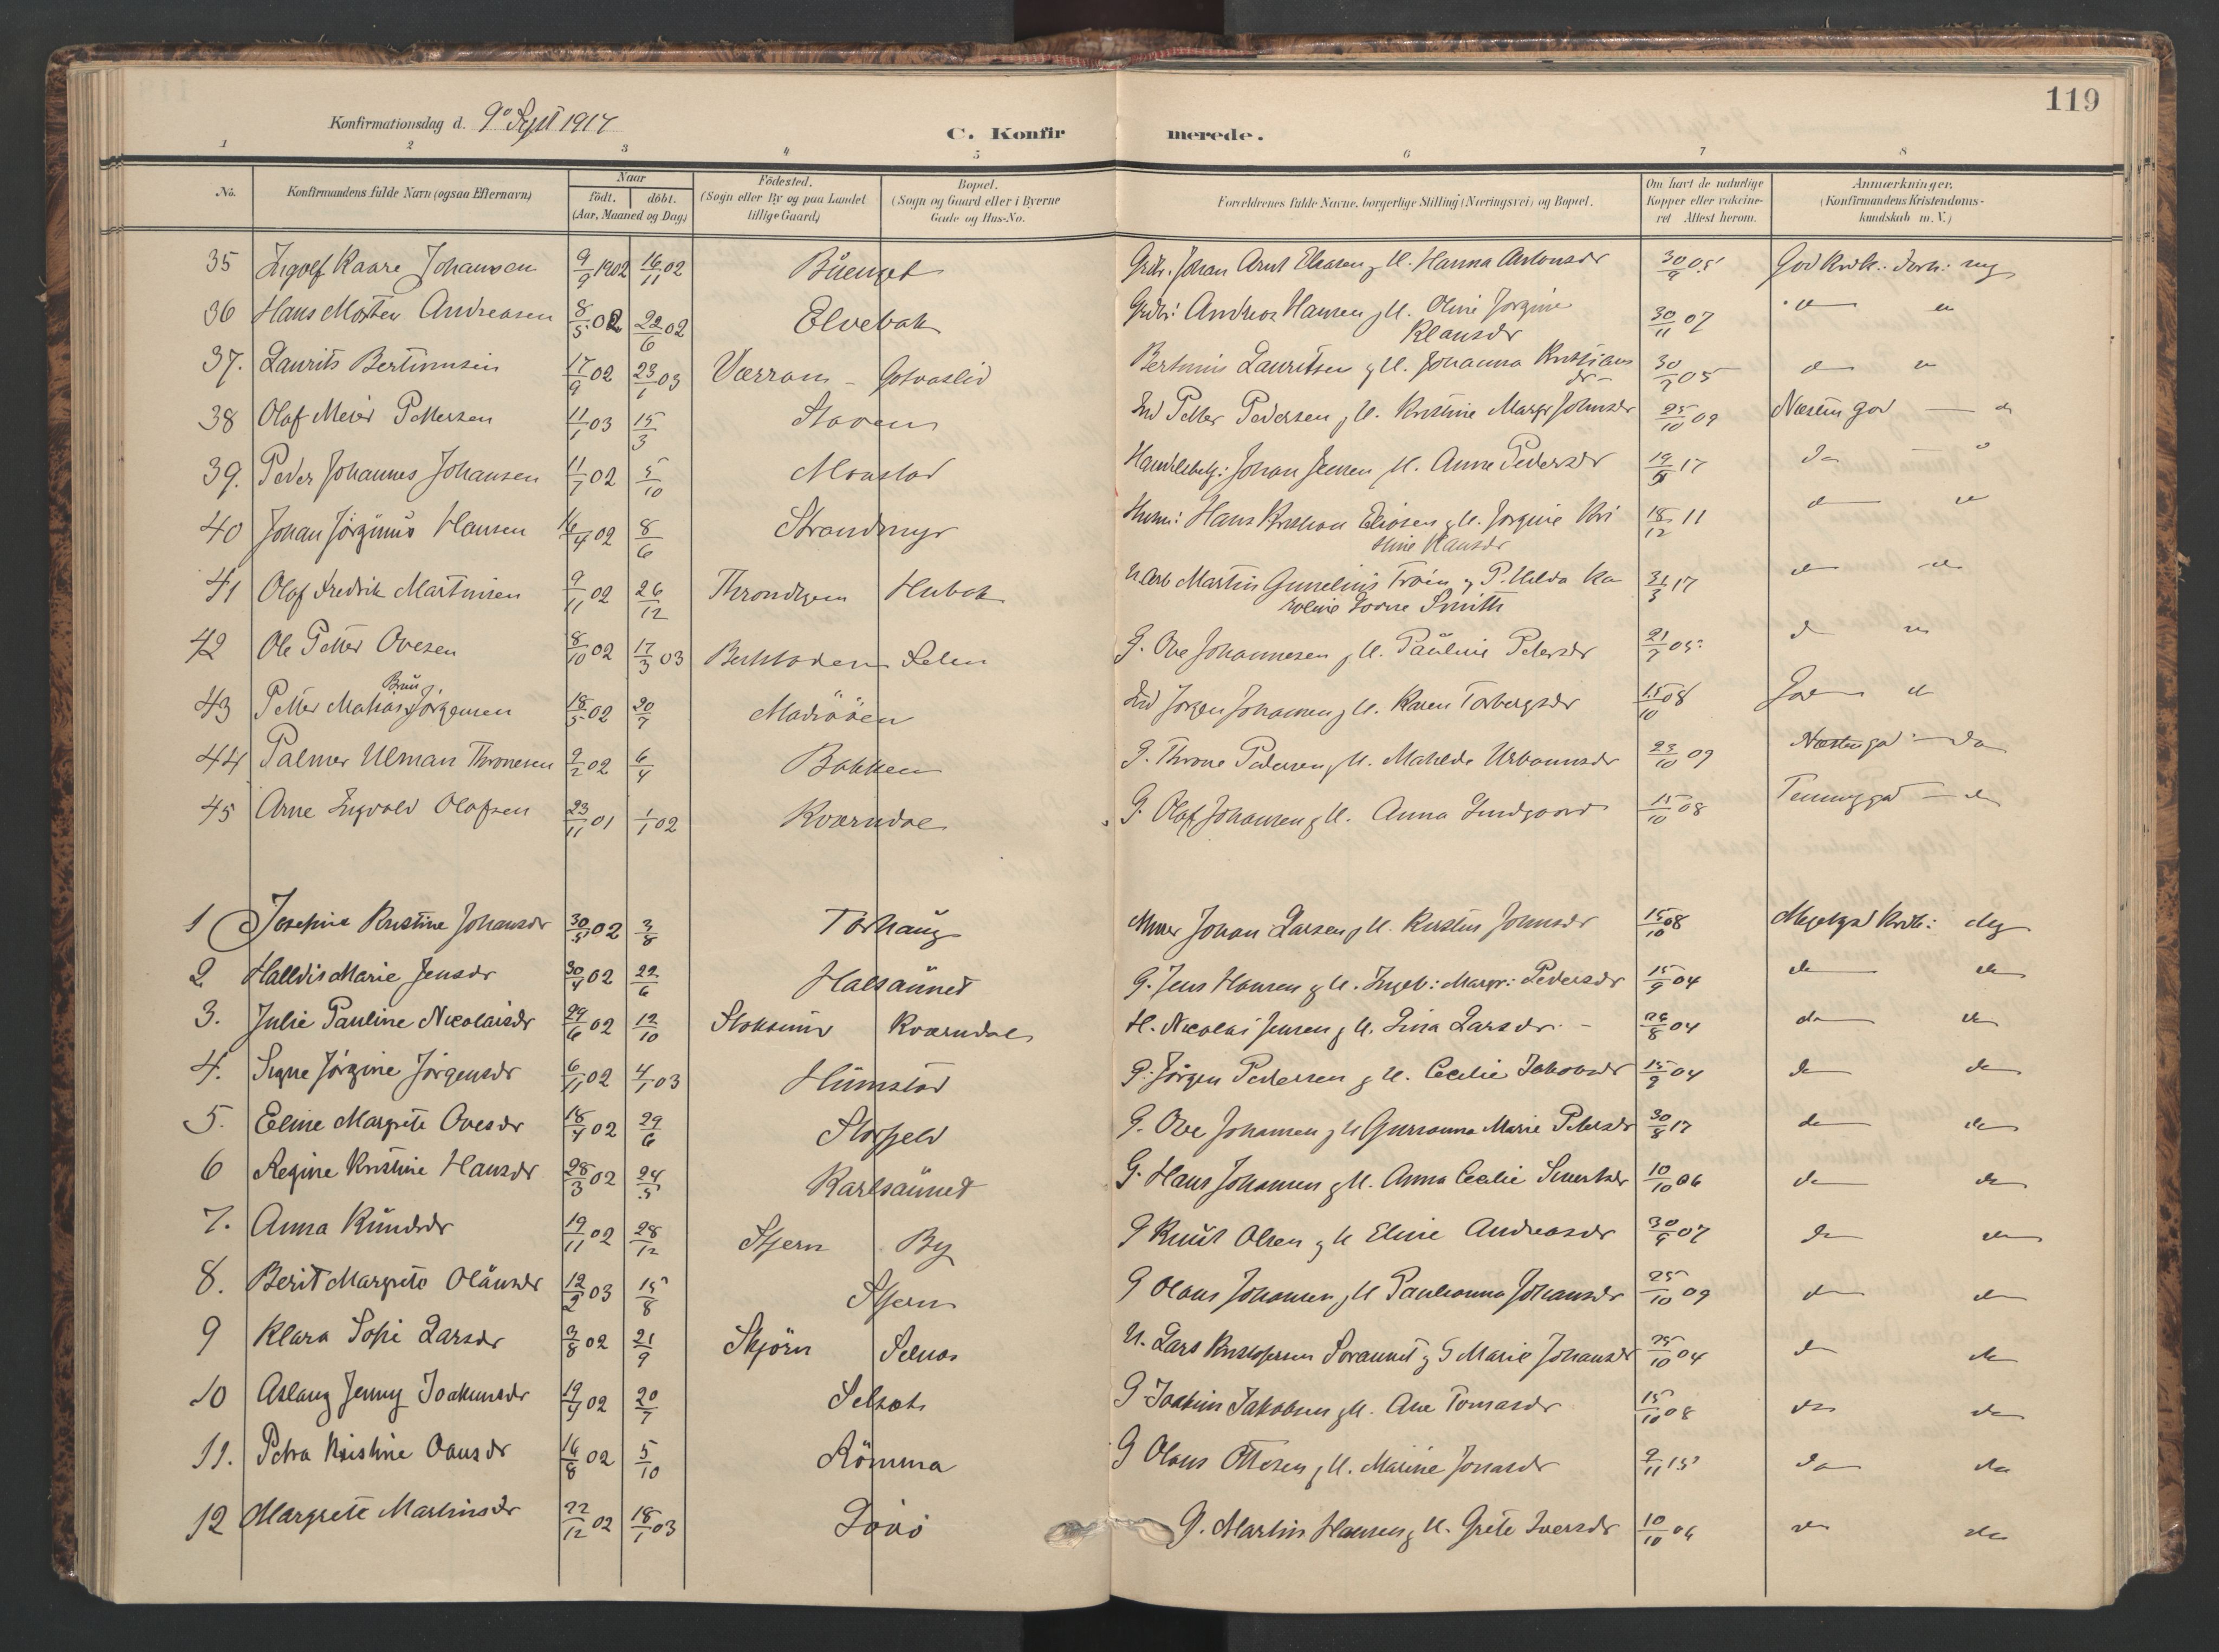 119
Konfirmationsdag d. 9º Sept 1917
C. Konfirmerede.
1 2 3 4 5 6 7 8
No.
Konfirmandens fulde Navn (ogsaa Efternavn)
Naar
födt. döbt.
(Aar, Maaned og Dag)
Födested.
(Sogn eller By og paa Landet
tillige Gaard)
Bopæl.
(Sogn og Gaard eller i Byerne
Gade og Hus-No.
Forældrenes fulde Navne, borgerlige Stilling (Næringsvei) og Bopæl.
Om havt de naturlige
Kopper eller vakcine-
ret Attest herom.
Anmærkninger.
(Konfirmandens Kristendoms-
kundskab m. V.)
35 Ingolf Kaare Johansen 9/9 1902 16/11 02 Büenget Johan Arnt Eliasen g U. Hanna Antonsdr 30/9 05 God Krdk:
36 Hans Morten Andreasen 8/5 02 22/6 02 Elvebak Andreas Hansen g U. Oline Jørgine
Klausdr 30/11 07
37. Laurits Bertinusen 17/9 02 23/1 03 Værran - Golvaslid Bertinus Lauritsen g U. Johanna Kristians
dr - 30/7 05
38 Olaf Meier Pettersen 11/1 03 15/3 Staven Ind Petter Pedersen g U. Kristine Margr Johnsdr 25/10 09 Næsten god — d
39. Peder Johannes Johansen 11/7 02 5/10 Monstad Johan Jensen g U. Anne Pedersdr 19/8 17 do
40 Johan Jörginus Hansen 16/4 02 8/6 Strandmyr Husm: Hans Kristian Eliasen g U. Jørgine Kri
stine Hansdr 18/12 11
41 Olaf Fredrik Martinsen 9/11 02 26/12 Throndhjem Hubak Martin Gunelius Troen g P. Hilda Ka
roline Smith 31/3 17
42 Ole Petter Ovesen 8/10 02 17/3 03 Selen G. Ove Johannesen g U. Pauline Petersdr 21/7 05
Brun
43 Petter Mathias Jørgensen 18/5 02 20/7 Madsöien Ind Jørgen Johansen g U. Karen Torbergsdr 15/10 08 God
44 Palmer Ulman Thronesen 9/2 02 6/4 Bakken G. Throne Pedersen g U. Mathilde Urbanusdr 23/10 09 Næsten god — do
45 Arne Ingvald Olafsen 23/11 01 1/1 02 Kværndal G. Olaf Johansen g U. Anna Lindgaard 15/10 08
1 Josephine Kristine Johansdr 30/5 02 3/8 Torhaug Murer Johan Larsen g U. Kirstine Johnsdr 15/10 08 Megetgod Krdk:
2 Halldis Marie Jensdr 30/4 02 22/6 Halsaünet G. Jens Hansen g U. Ingeb: Margr: Pedersdr 15/9 04 do do
3. Julie Pauline Nicolaisdr 29/6 02 12/10 Stoksund Kværndal H. Nicolai Jensen g U. Lina Larsdr. - 26/8 04 do do
4. Signe Jörgine Jörgensdr 6/11 02 4/1 03 Humstad G. Jörgen Pedersen g U. Cecilie Jakobsdr 15/9 04 do do
5. Eline Margrete Ovesdr 18/4 02 29/6 Storfjeld G. Ove Johansen g U Gurianna Marie Petersdr 30/8 17 do do
6 Regine Kristine Hansdr 28/3 02 24/5 Karlsaünet G. Hans Johansen g U. Anna Cecilie Sivertsdr 10/10 06 do do
7. Anna Knüdsdr 19/11 02 28/12 Stjern By G Knüt Olsen g U Eline Andreasdr 30/9 07 do do
8. Berit Margrete Olaüsdr 12/2 03 15/8 Stjern G Olaus Johansen g U Paulianna Johansdr 25/10 09 do do
9 Klara Sofie Larsdr 3/8 02 21/9 Skjörn Selnes U. Lars Kristofersen Soraunet g G Marie Johansdr 25/10 04 do do
10 Aslaug Jenny Joakimsdr 19/4 02 20/7 Selsæt G Joakim Jakobsen g U. Ane Tomasdr 15/10 08 do do
11. Petra Kristine Olausdr 16/8 02 5/10 Römma G Olaus Ottesen g U. Marine Jonasdr 9/11 15 do do
12 Margrete Martinsdr 22/12 02 18/1 03 Lövö G. Martin Hansen g U. Grete Iversdr 10/10 06 do do